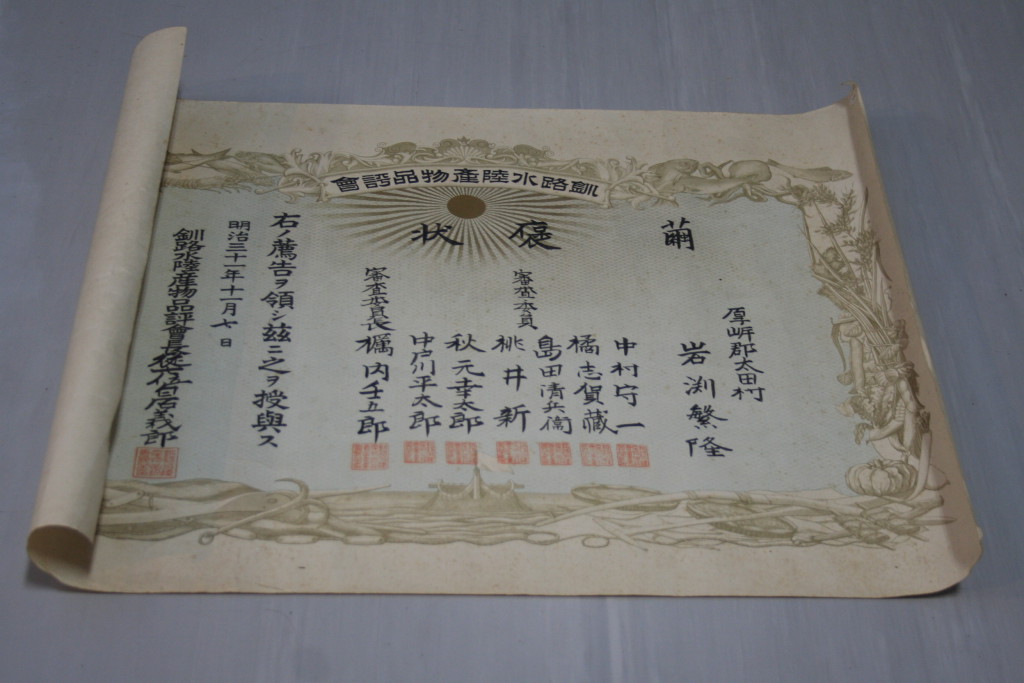 會評品物產陸水路釧
繭
褒狀
厚岸郡太田村
岩渕繁隆
審査委員
中村守一
橘志賀藏
島田清兵衞
桃井新
秋元幸太郎
中戸川平太郎
審査委員長
櫔内壬五郎
右ノ薦告ヲ領シ茲ニ之ヲ授與ス
明治三十一年十一月七日
釧路水陸産物品評會長